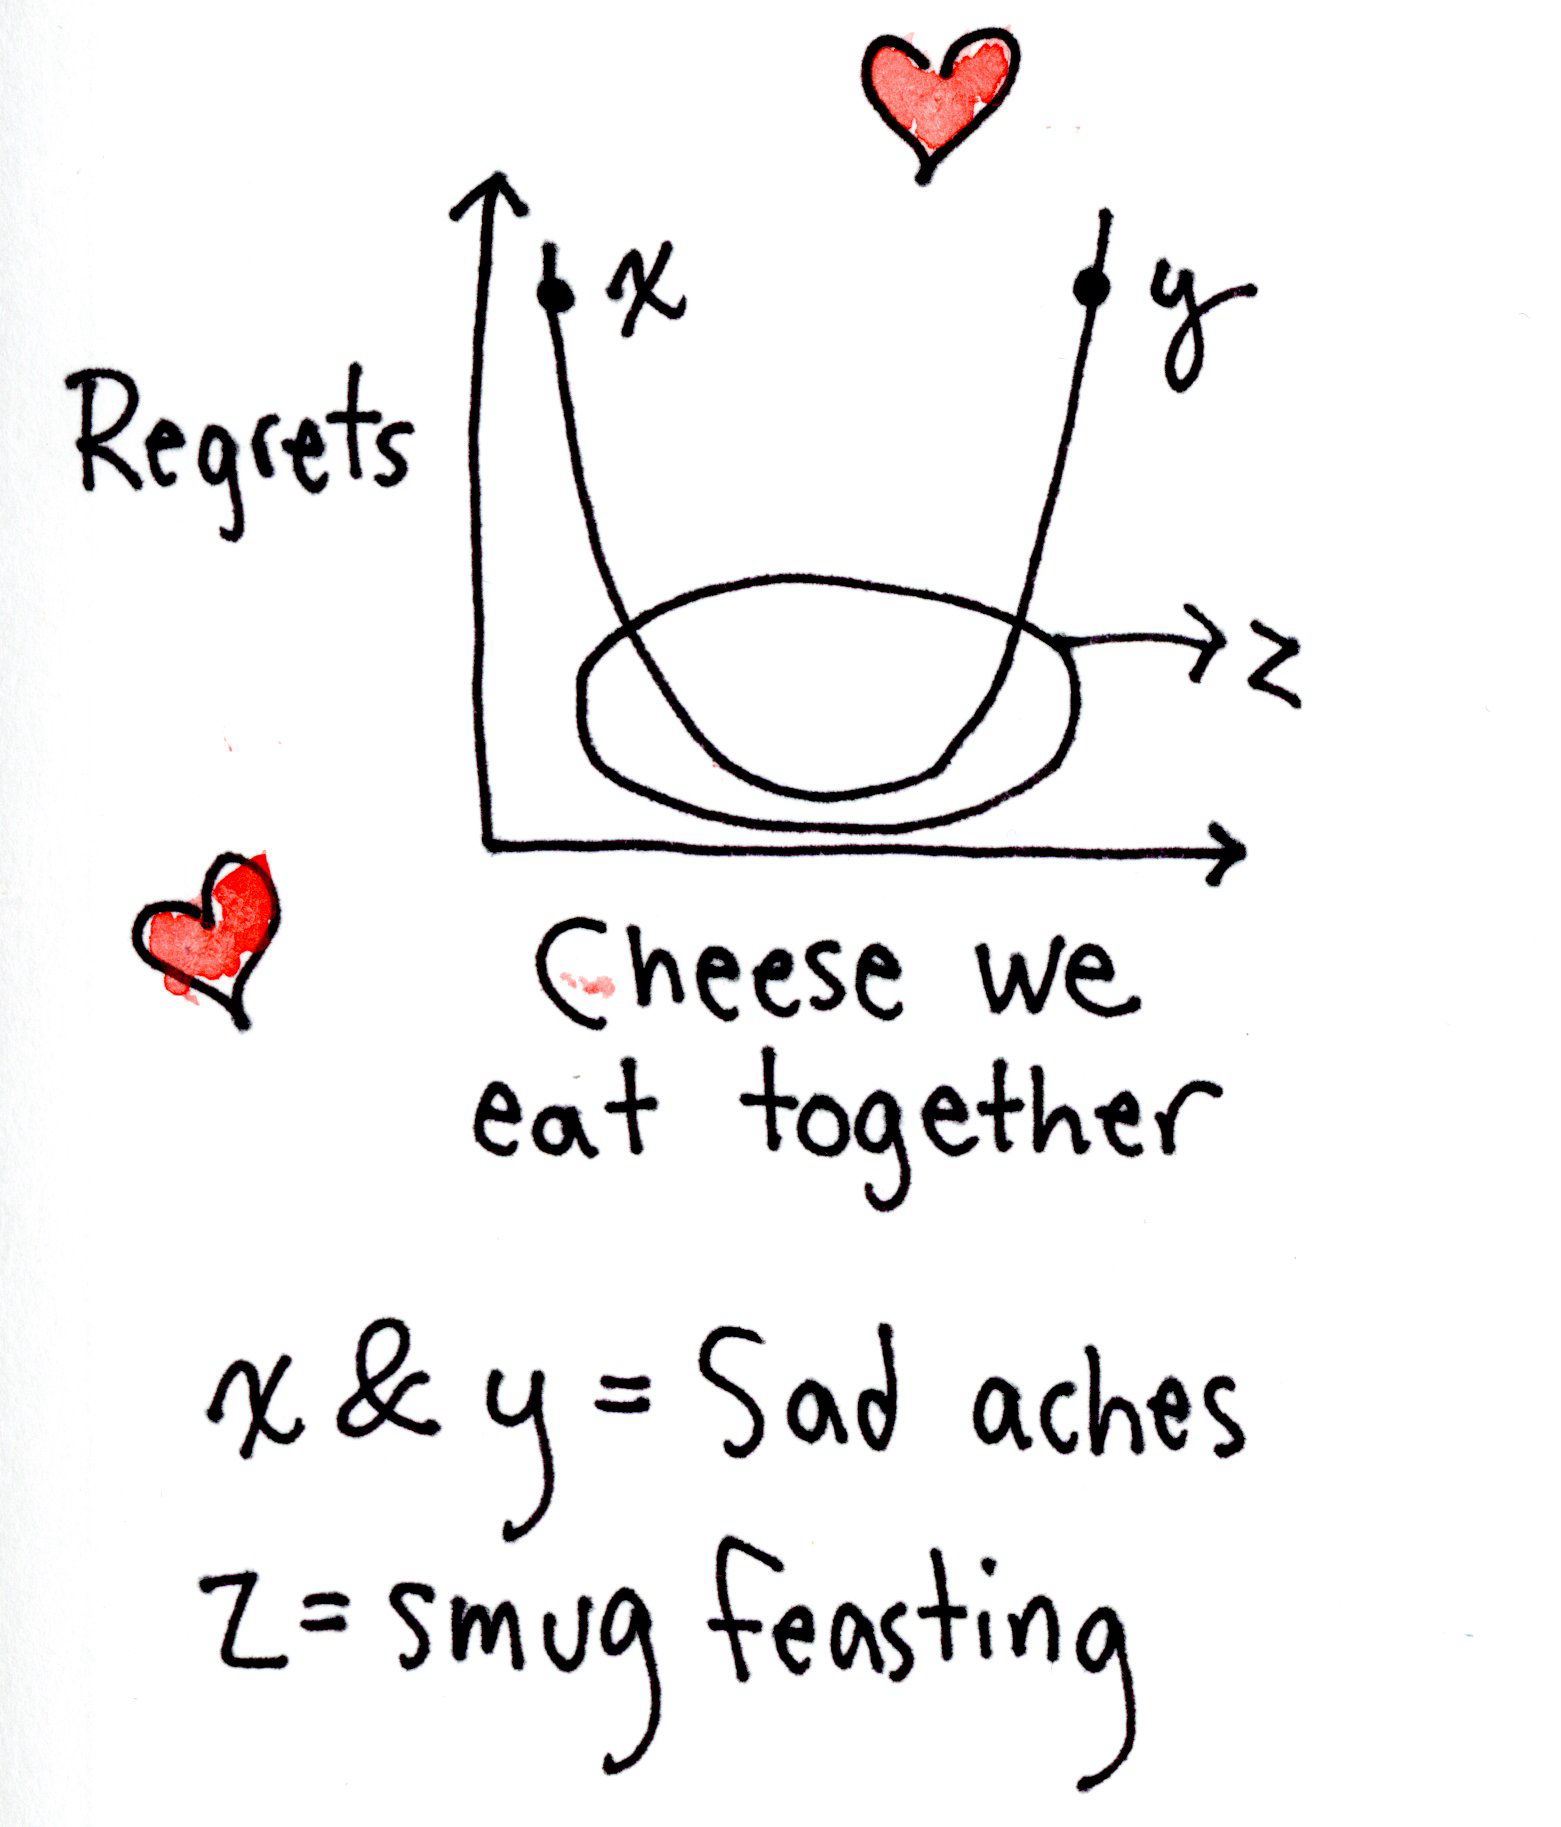 x
y
Regrets
z
Cheese we
eat together
x & y = Sad aches
z = smug feasting